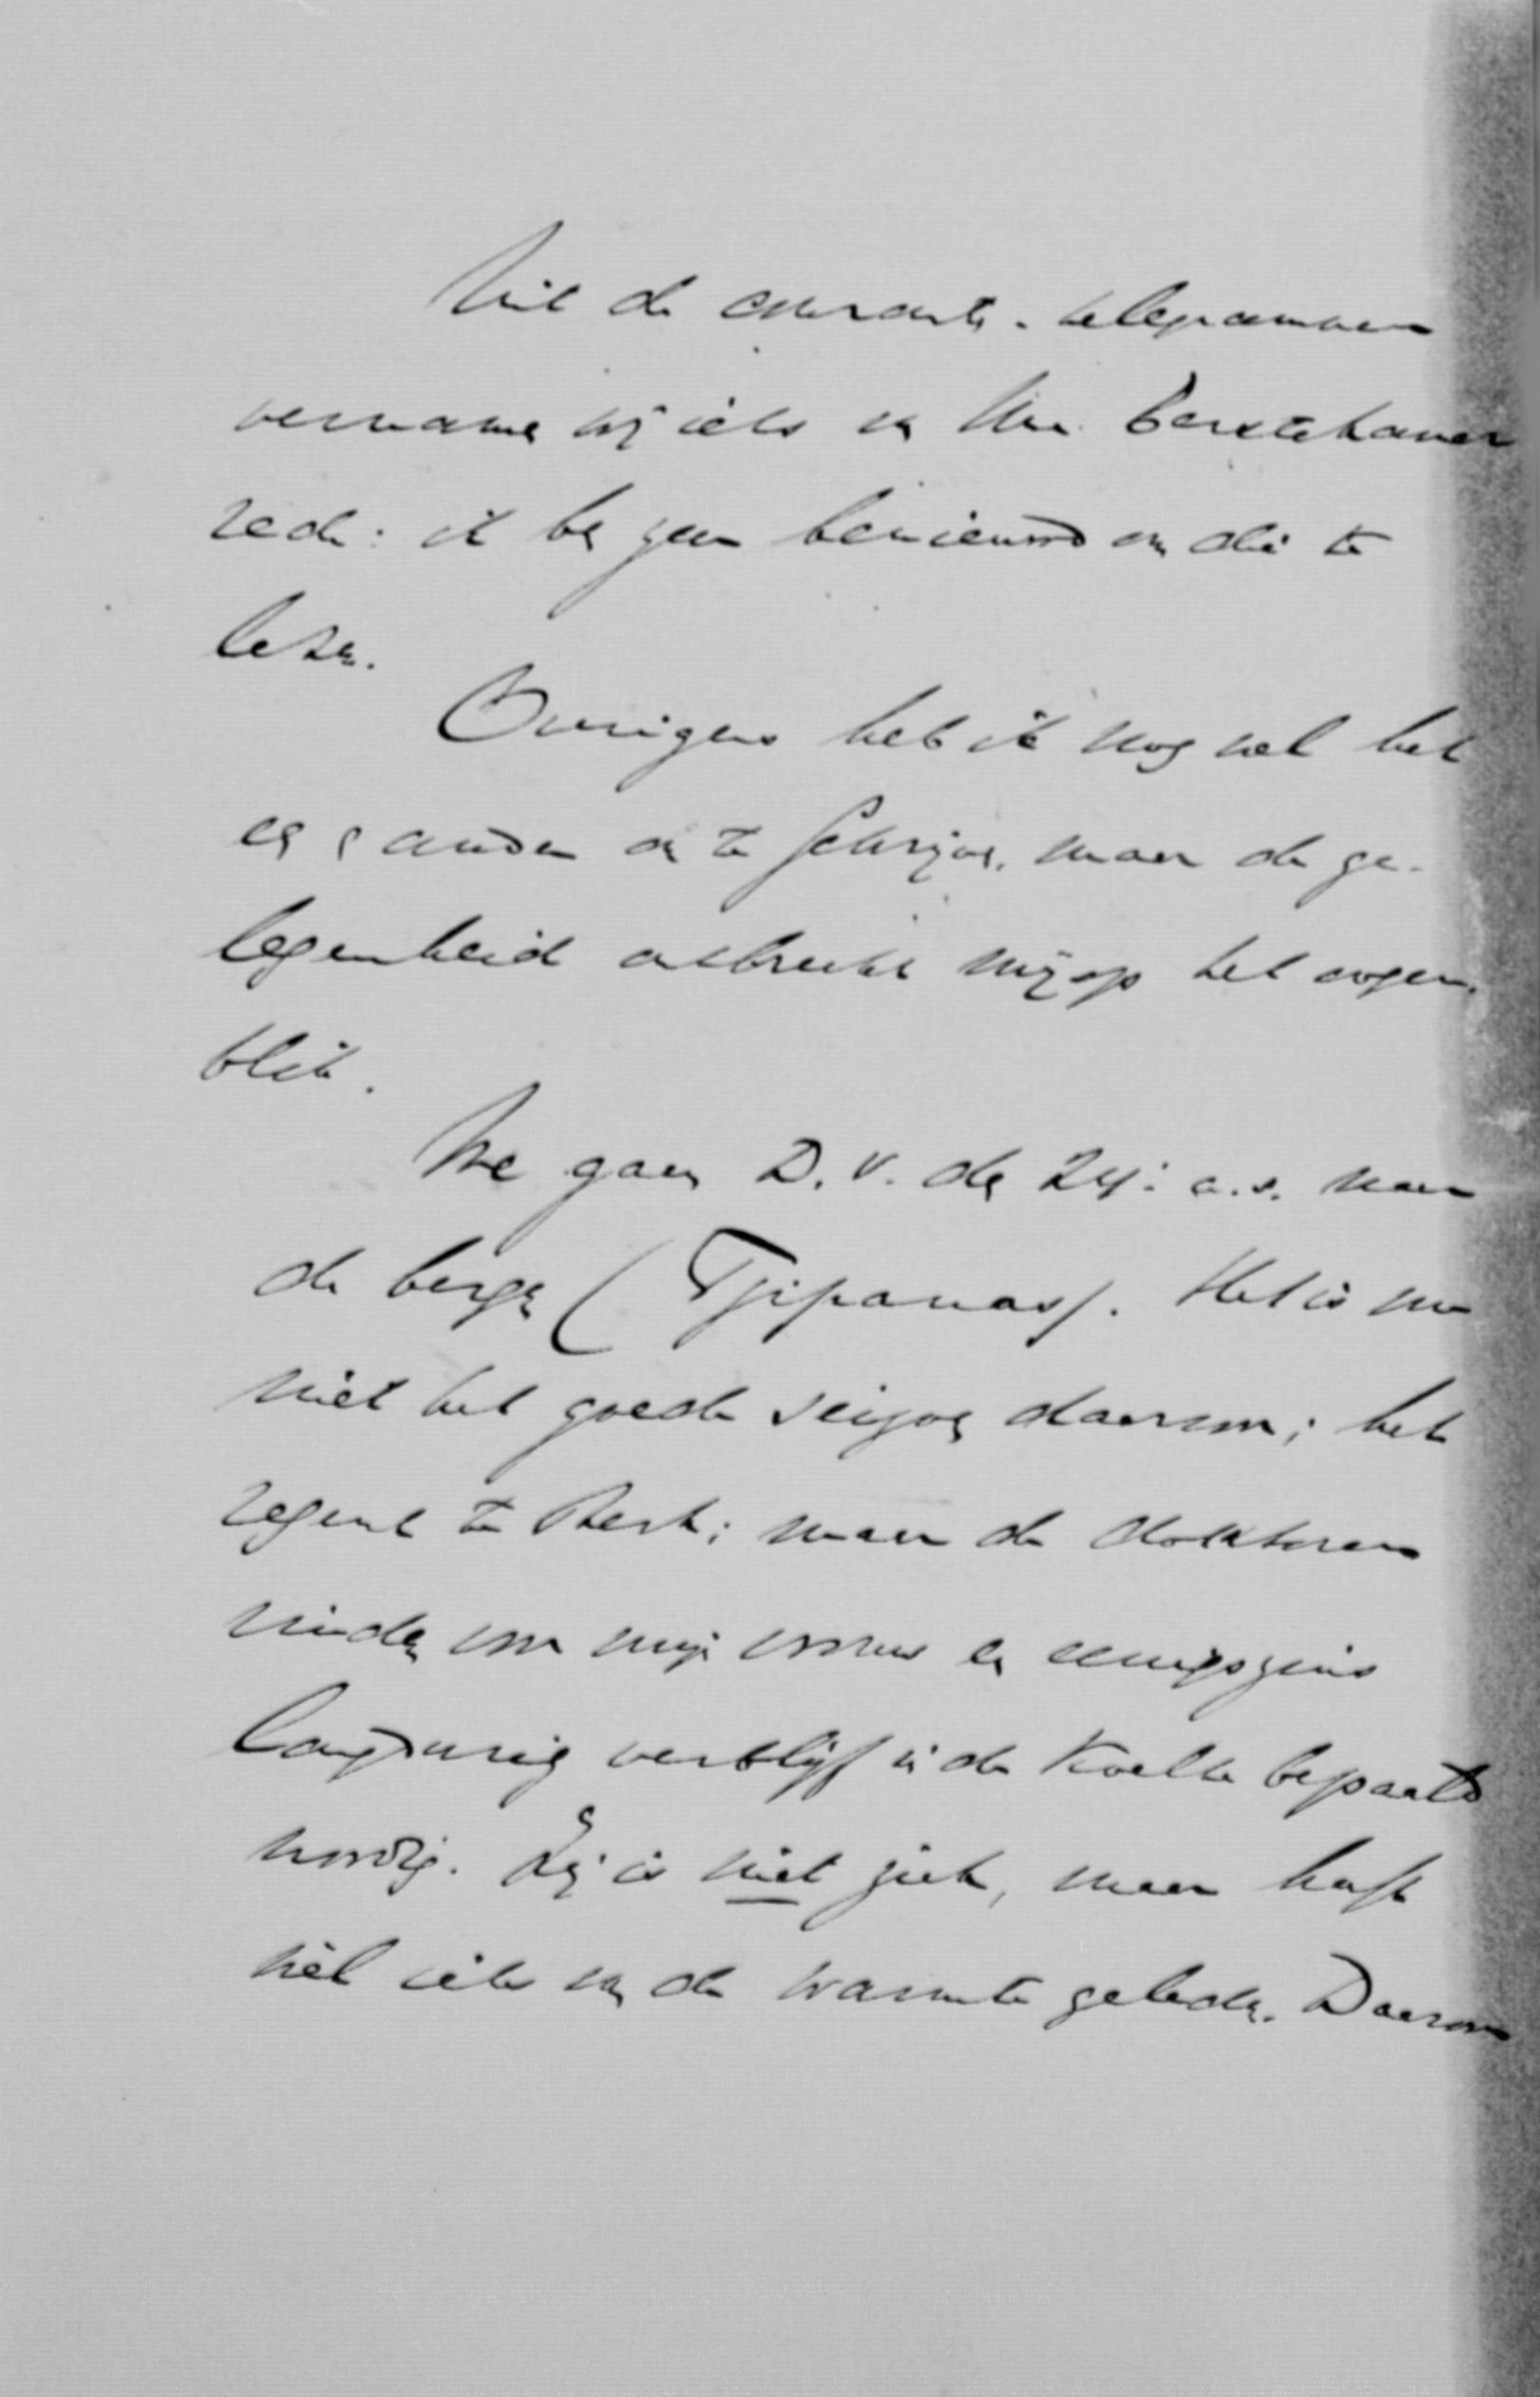 Uit de courante-telegrammen
vernamen wij iets van Uw Eerste Kamer
rede: ik ben zeer benieuwd om die te
lezen.
Overigens heb ik nog wel het
en ander te schrijven, maar de ge-
legenheid ontbreekt mij op het oogen-
blik.
We gaan D.V. den 24: a.s. naar
de bergen (Tjipanas). Het is nu
niet het goede seizoen daarvoor; het
regent te sterk; maar de doktoren
vinden voor mijn vrouw een eenigszins
langdurig verblijf in de koelte bepaald
noodig. Zij is niet ziek, maar heeft
wèl iets van de warmte geleden. Daarom